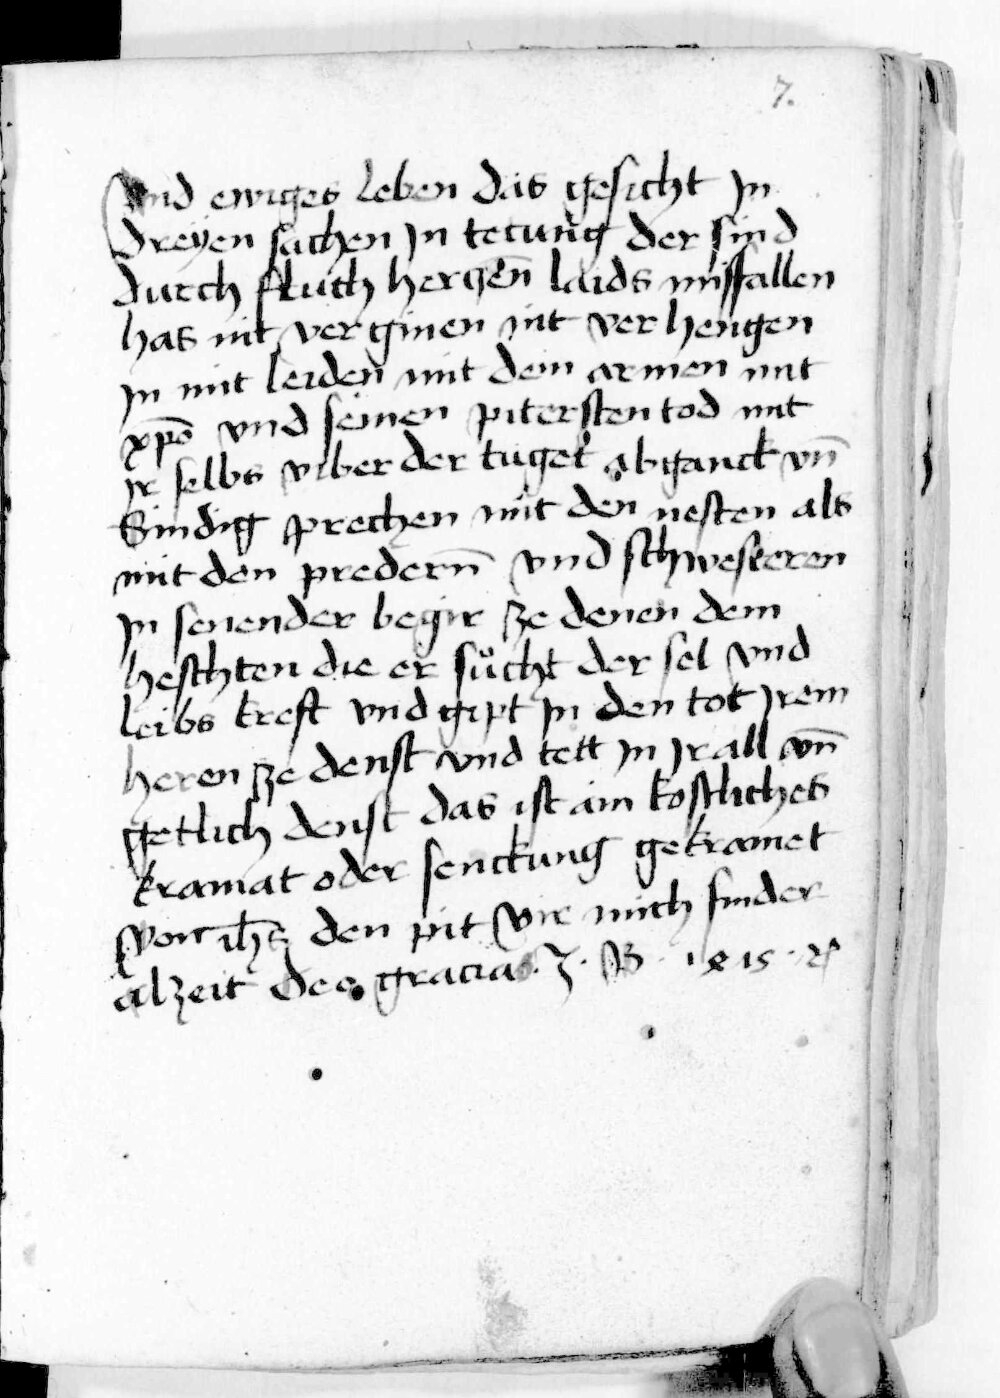 7.
vnd ewiges leben das gesicht In
dreÿen sachen In tetung der sind
durch fluch herczen̄ laids missfallen
has nit verginen nit ver hengen
In mit leiden mit dem armen mit
xp̄o vnd seinen pitersten tod mit
Ir selbs viber der tuget abganck vn̄
sindig sprechen mit den nesten als
mit den predern̄ vnd schwesteren
In senender begir ze denen dem
heschten die er sůcht der sel vnd
leibs kreft vnd gipt In den tot Irem
heren ze denst vnd tett In Ir all vn̄
getlich denst das ist ain kostliches
kramat oder senckung gekramet
von ih̄s den pit vir mich sinder
alzeit deo gracias. Z. B. 1815